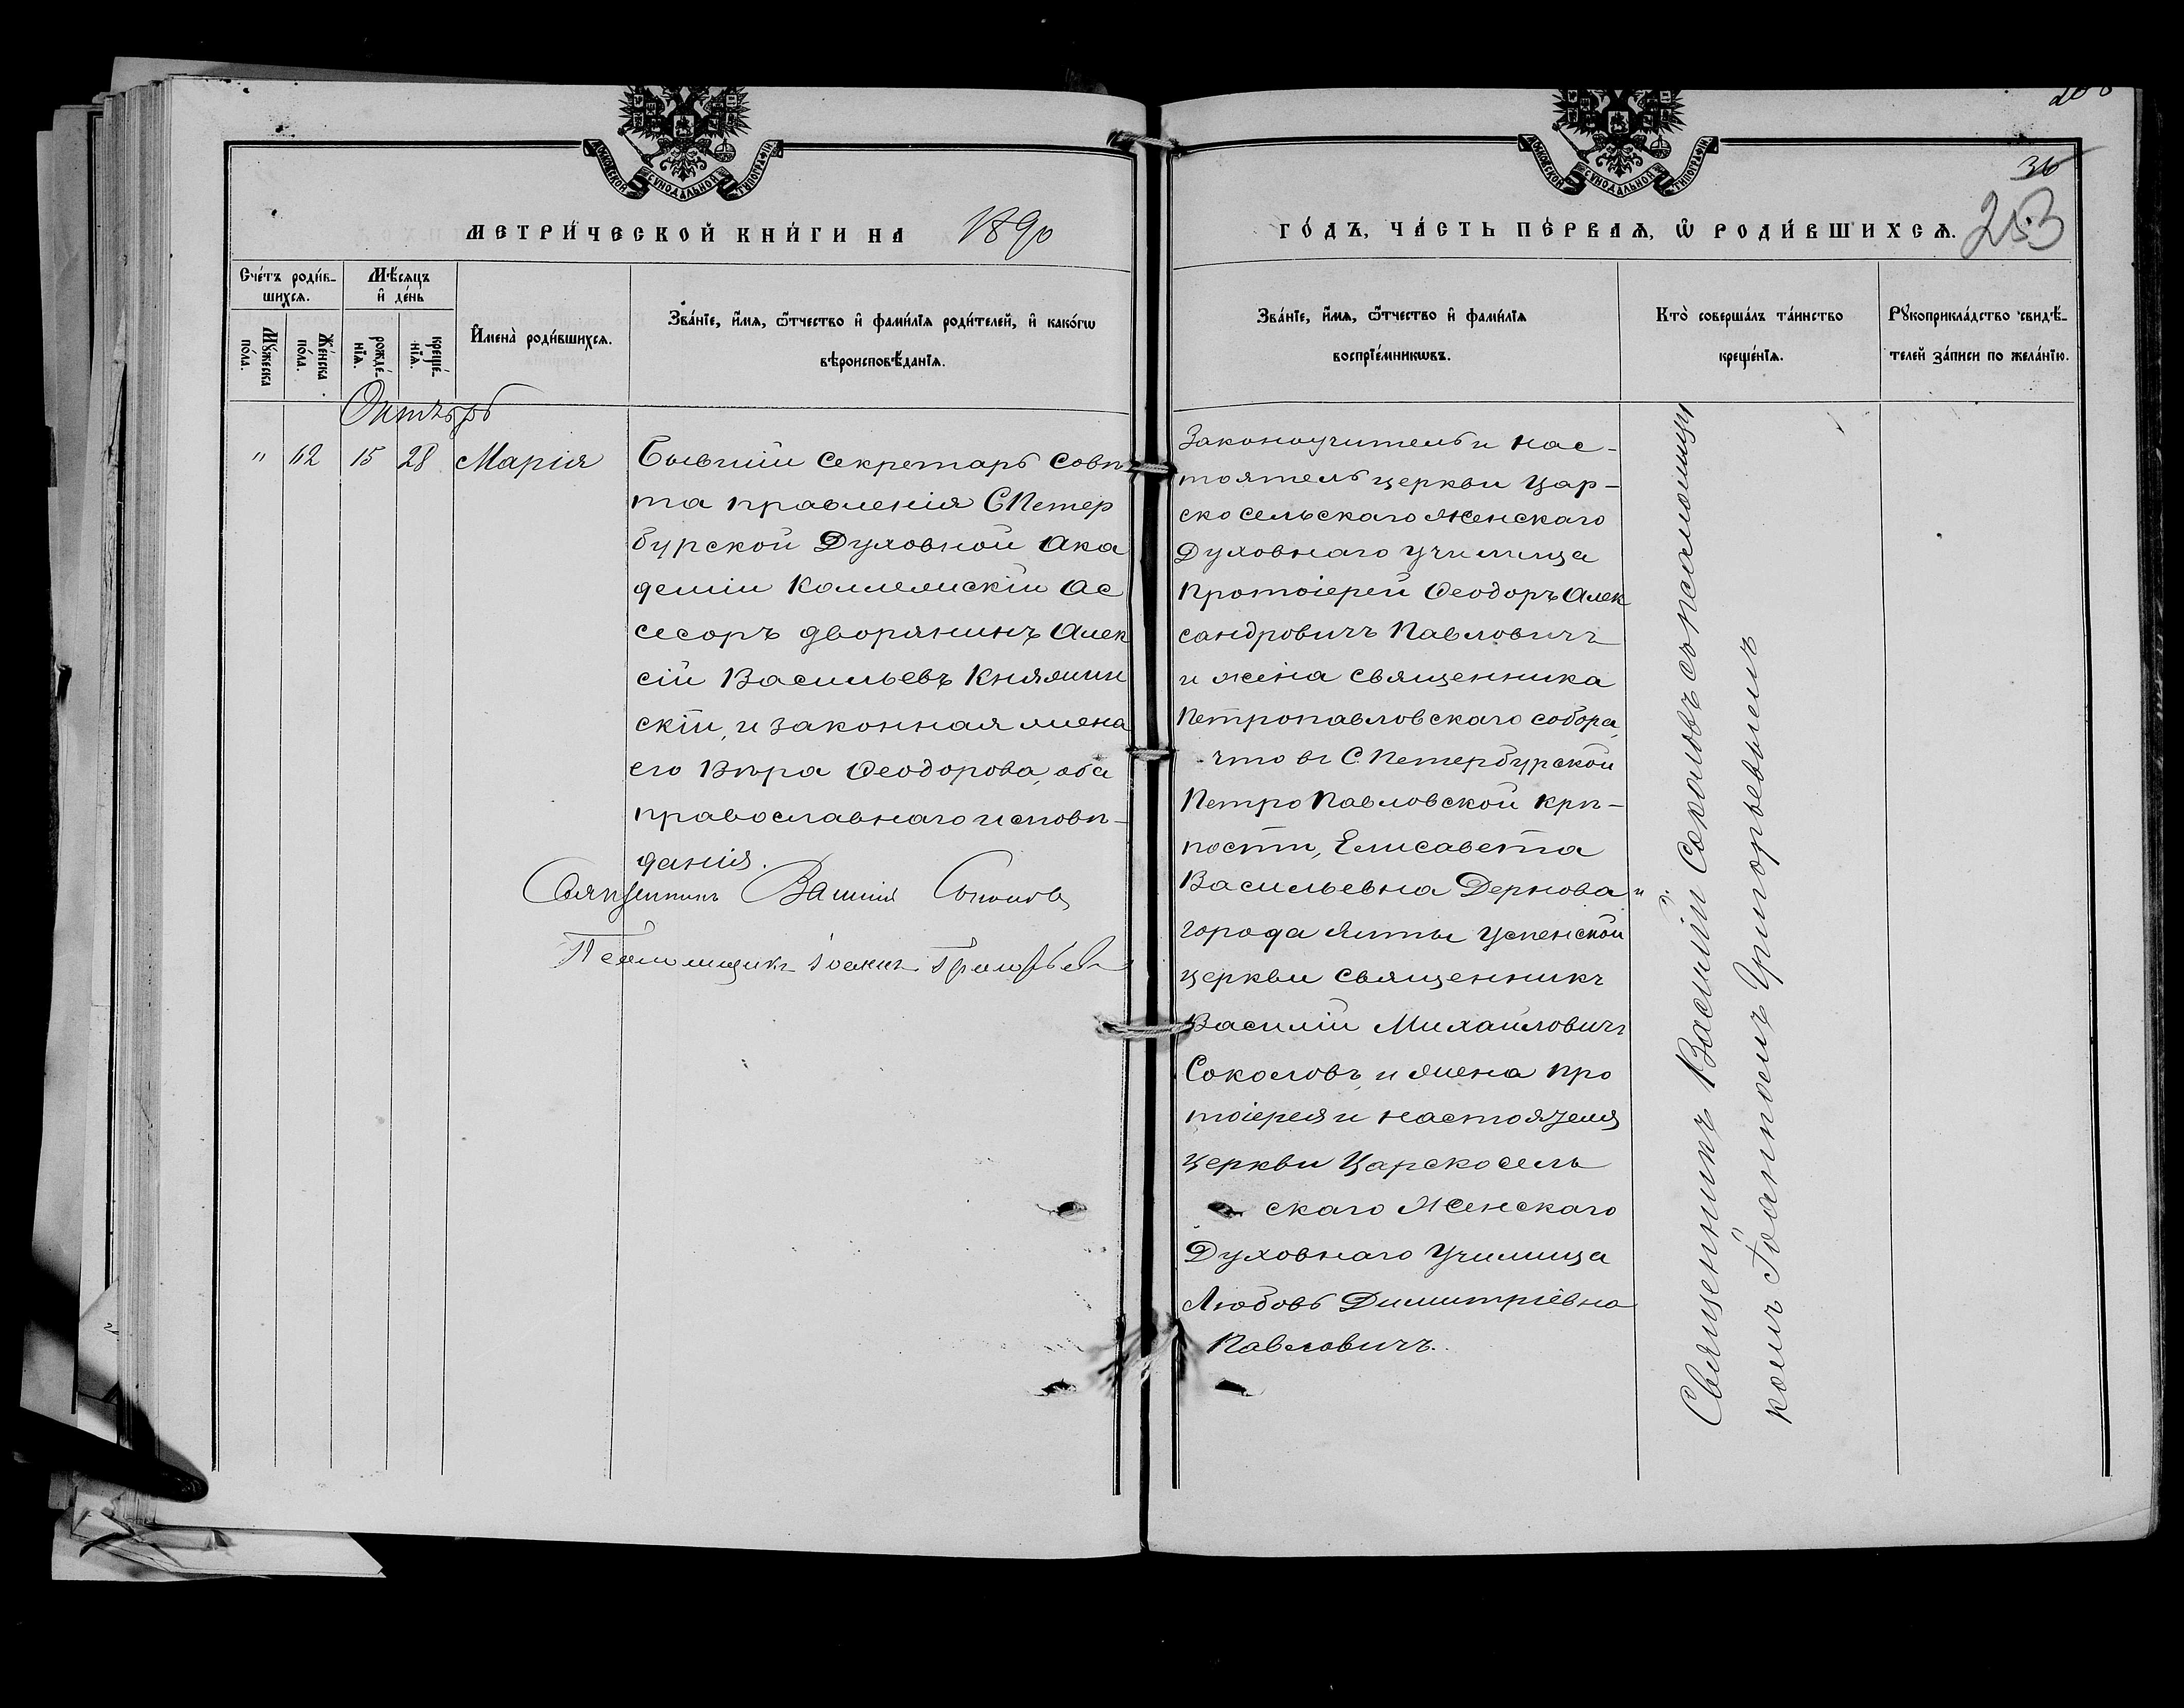 МОСКОВСКОЙ СѴНОДАЛЬНОЙ ТИПОГРАФІИ
МЕТРИ́ЧЕСКОЙ КНИ́ГИ НА 1890
Сче́тъ роди́в-
шихсѧ.
Мѣ́сѧцъ
и҆ де́нь
Мꙋ́жеска
по́ла.
Же́нска
по́ла.
рожде́-
нїѧ.
креще́-
нїѧ.
И҆мена̀ роди́вшихсѧ.
Зва́нїе, и҆́мѧ, ѻ҆́тчество и҆ фами́лїѧ роди́телей, и҆ како́гѡ
вѣроисповѣ́данїѧ.
Октябрь
" 62 15 28 Марія
Бывшій Секретарь Совѣ
та правленія СПетер
бурской Духовной Ака
деміи Коллежскій Ас
сесоръ дворянинъ Алек
сій Васильевъ Княжин
скій, и законная жена
его Вѣра Ѳеодорова, оба
православнаго исповѣ-
данія.
Священникъ Василій Соколовъ
Псаломщикъ Іоаннъ Григорьевъ
МОСКОВСКОЙ СѴНОДАЛЬНОЙ ТИПОГРАФІИ
36
253
ГО́ДЪ, ЧА́СТЬ ПЕ́РВАѦ, Ѡ҆ РОДИ́ВШИХСѦ.
Зва́нїе, и҆́мѧ, ѻ҆́тчество и҆ фами́лїѧ
воспрїе́мникѡвъ.
Кто̀ соверша́лъ та́инство
креще́нїѧ.
Рꙋкоприкла́дство свидѣ́-
телей за́писи по жела́нїю.
Законоучитель и нас-
тоятель церкви Цар-
скосельскаго Женскаго
Духовнаго училища
Протоіерей Ѳеодоръ Алек
сандровичъ Павловичъ
и жена священника
Петропавловскаго собора,
что въ С.Петербурской
Петро Павловской крѣ-
пости, Елисавета
Васильевна Дернова "
города Ялты Успенской
церкви священникъ
Василій Михайловичъ
Соколовъ, и жена про
тоіерея и настоятеля
церкви Царскосель
скаго Женскаго
Духовнаго Училища
Любовь Димитріевна
Павловичъ.
Священникъ Василій Соколовъ съ псаломщи
комъ Іоанномъ Григорьевымъ